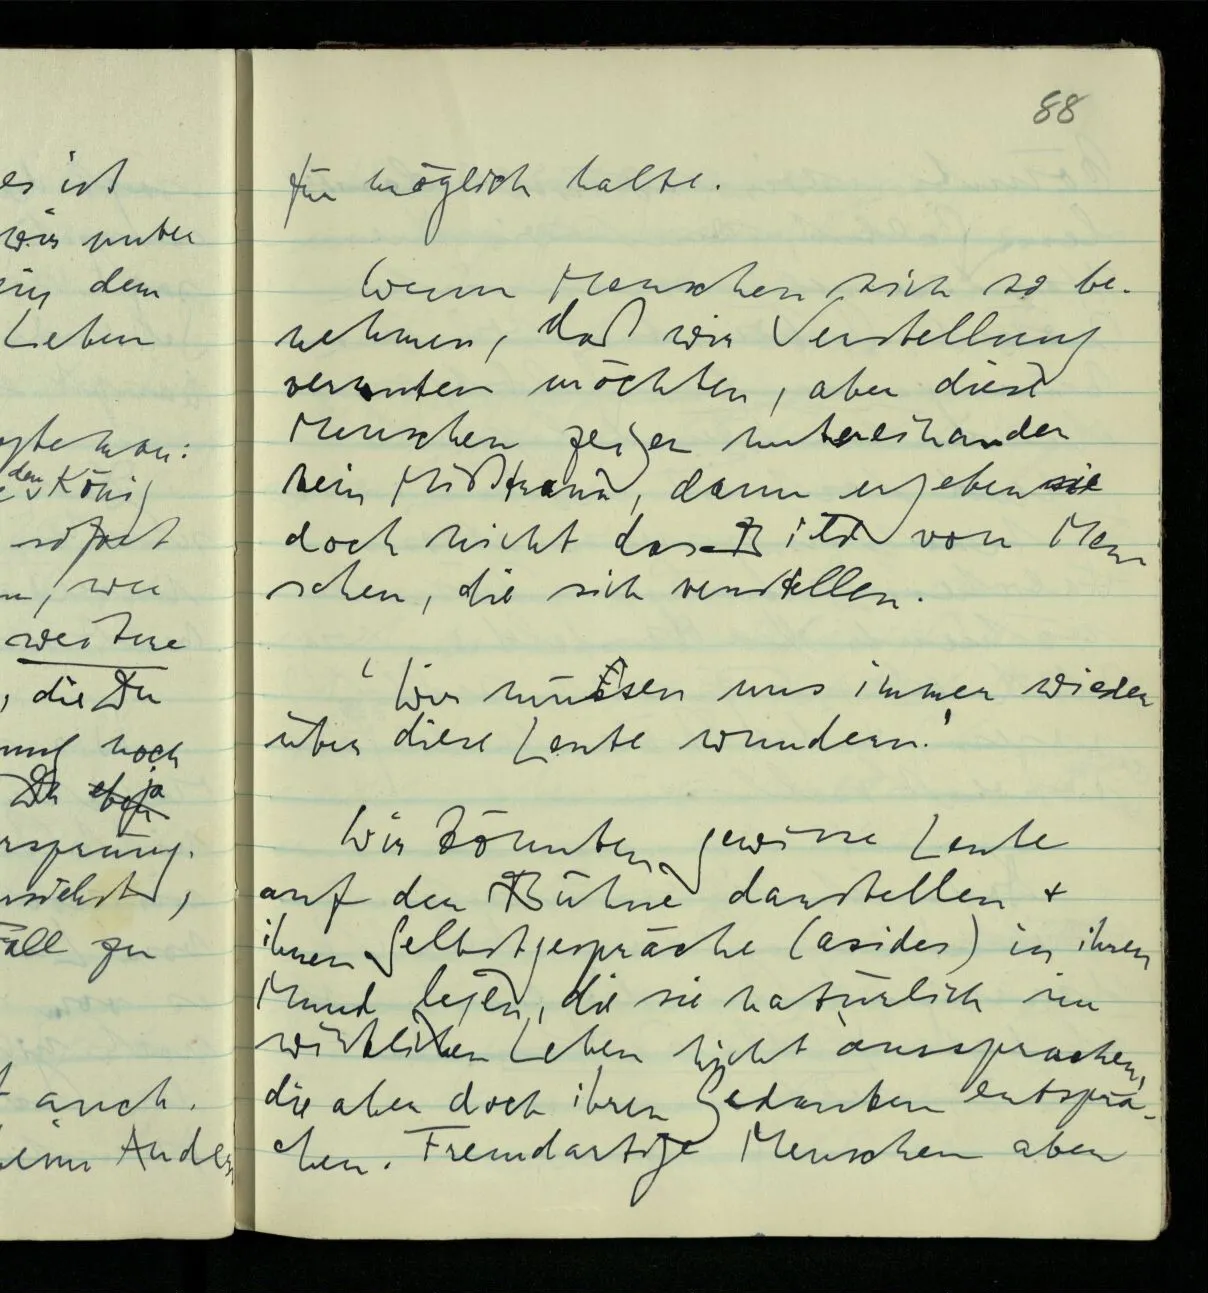 es ist
wir unter
dem
Leben
man:
den König
sofort
weitere
, die Du
noch
Du ja
Fall zu
auch.
Ander
88
für möglich halte.
Wenn Menschen sich so be-
nehmen, daß wir Verstellung
vermuten möchten, aber diese
Menschen zeigen untereinander
kein Mißtrauen, dann ergeben sie
doch nicht das Bild von Men
schen, die sich verstellen.
'Wir müssen uns immer wieder
über diese Leute wundern.'
Wir könnten gewisse Leute
auf der Bühne darstellen +
ihnen Selbstgespräche (asides) in ihren
Mund legen, die sie natürlich im
wirklichen Leben nicht aussprächen,
die aber doch ihren Gedanken entsprä-
chen. Fremdartige Menschen aber